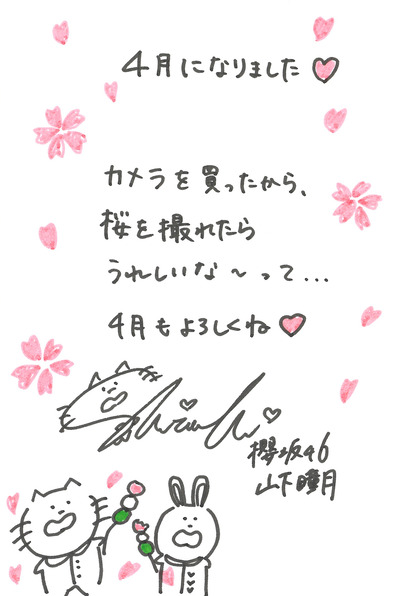 4月になりました
カメラを買ったから、
桜を撮れたら
うれしいな〜って...
4月もよろしくね
櫻坂46
山下瞳月